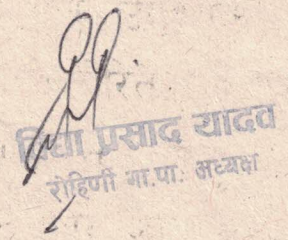 प्रसाद यादव
रोहिणी गा.पा. अध्यक्ष